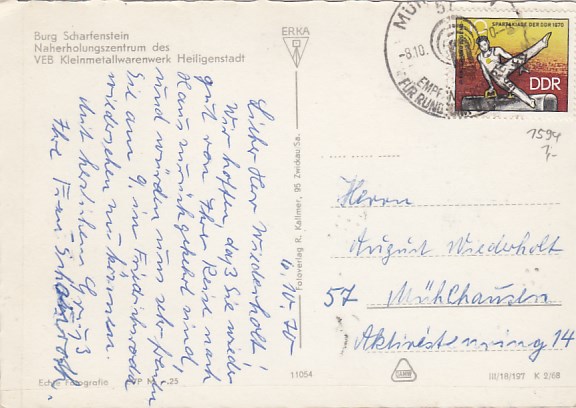 Burg Scharfenstein
Naherholungszentrum des
VEB Kleinmetallwarenwerk Heiligenstadt
ERKA
MÜH
57
-8.10.
EMPF
FÜR RUND
SPARTAKIADE DER DDR 1970
DDR
1594
1,-
6.10.70
Lieber Herr Wiederholt!
Wir hoffen, daß Sie wieder
gut von Ihrer Reise nach
Haus zurückgekehrt sind
und würden uns sehr freuen
Sie am 9. in Friedrichroda
wiedersehen zu können.
Mit herzlichen Gruß
Ihre Frau
Fotoverlag R. Kallmer, 95 Zwickau/Sa.
Herrn
August Wiederholt
57 Mühlhausen
Aktivistenring 14
Echte Fotografie
11054
III/18/197 K 2/68